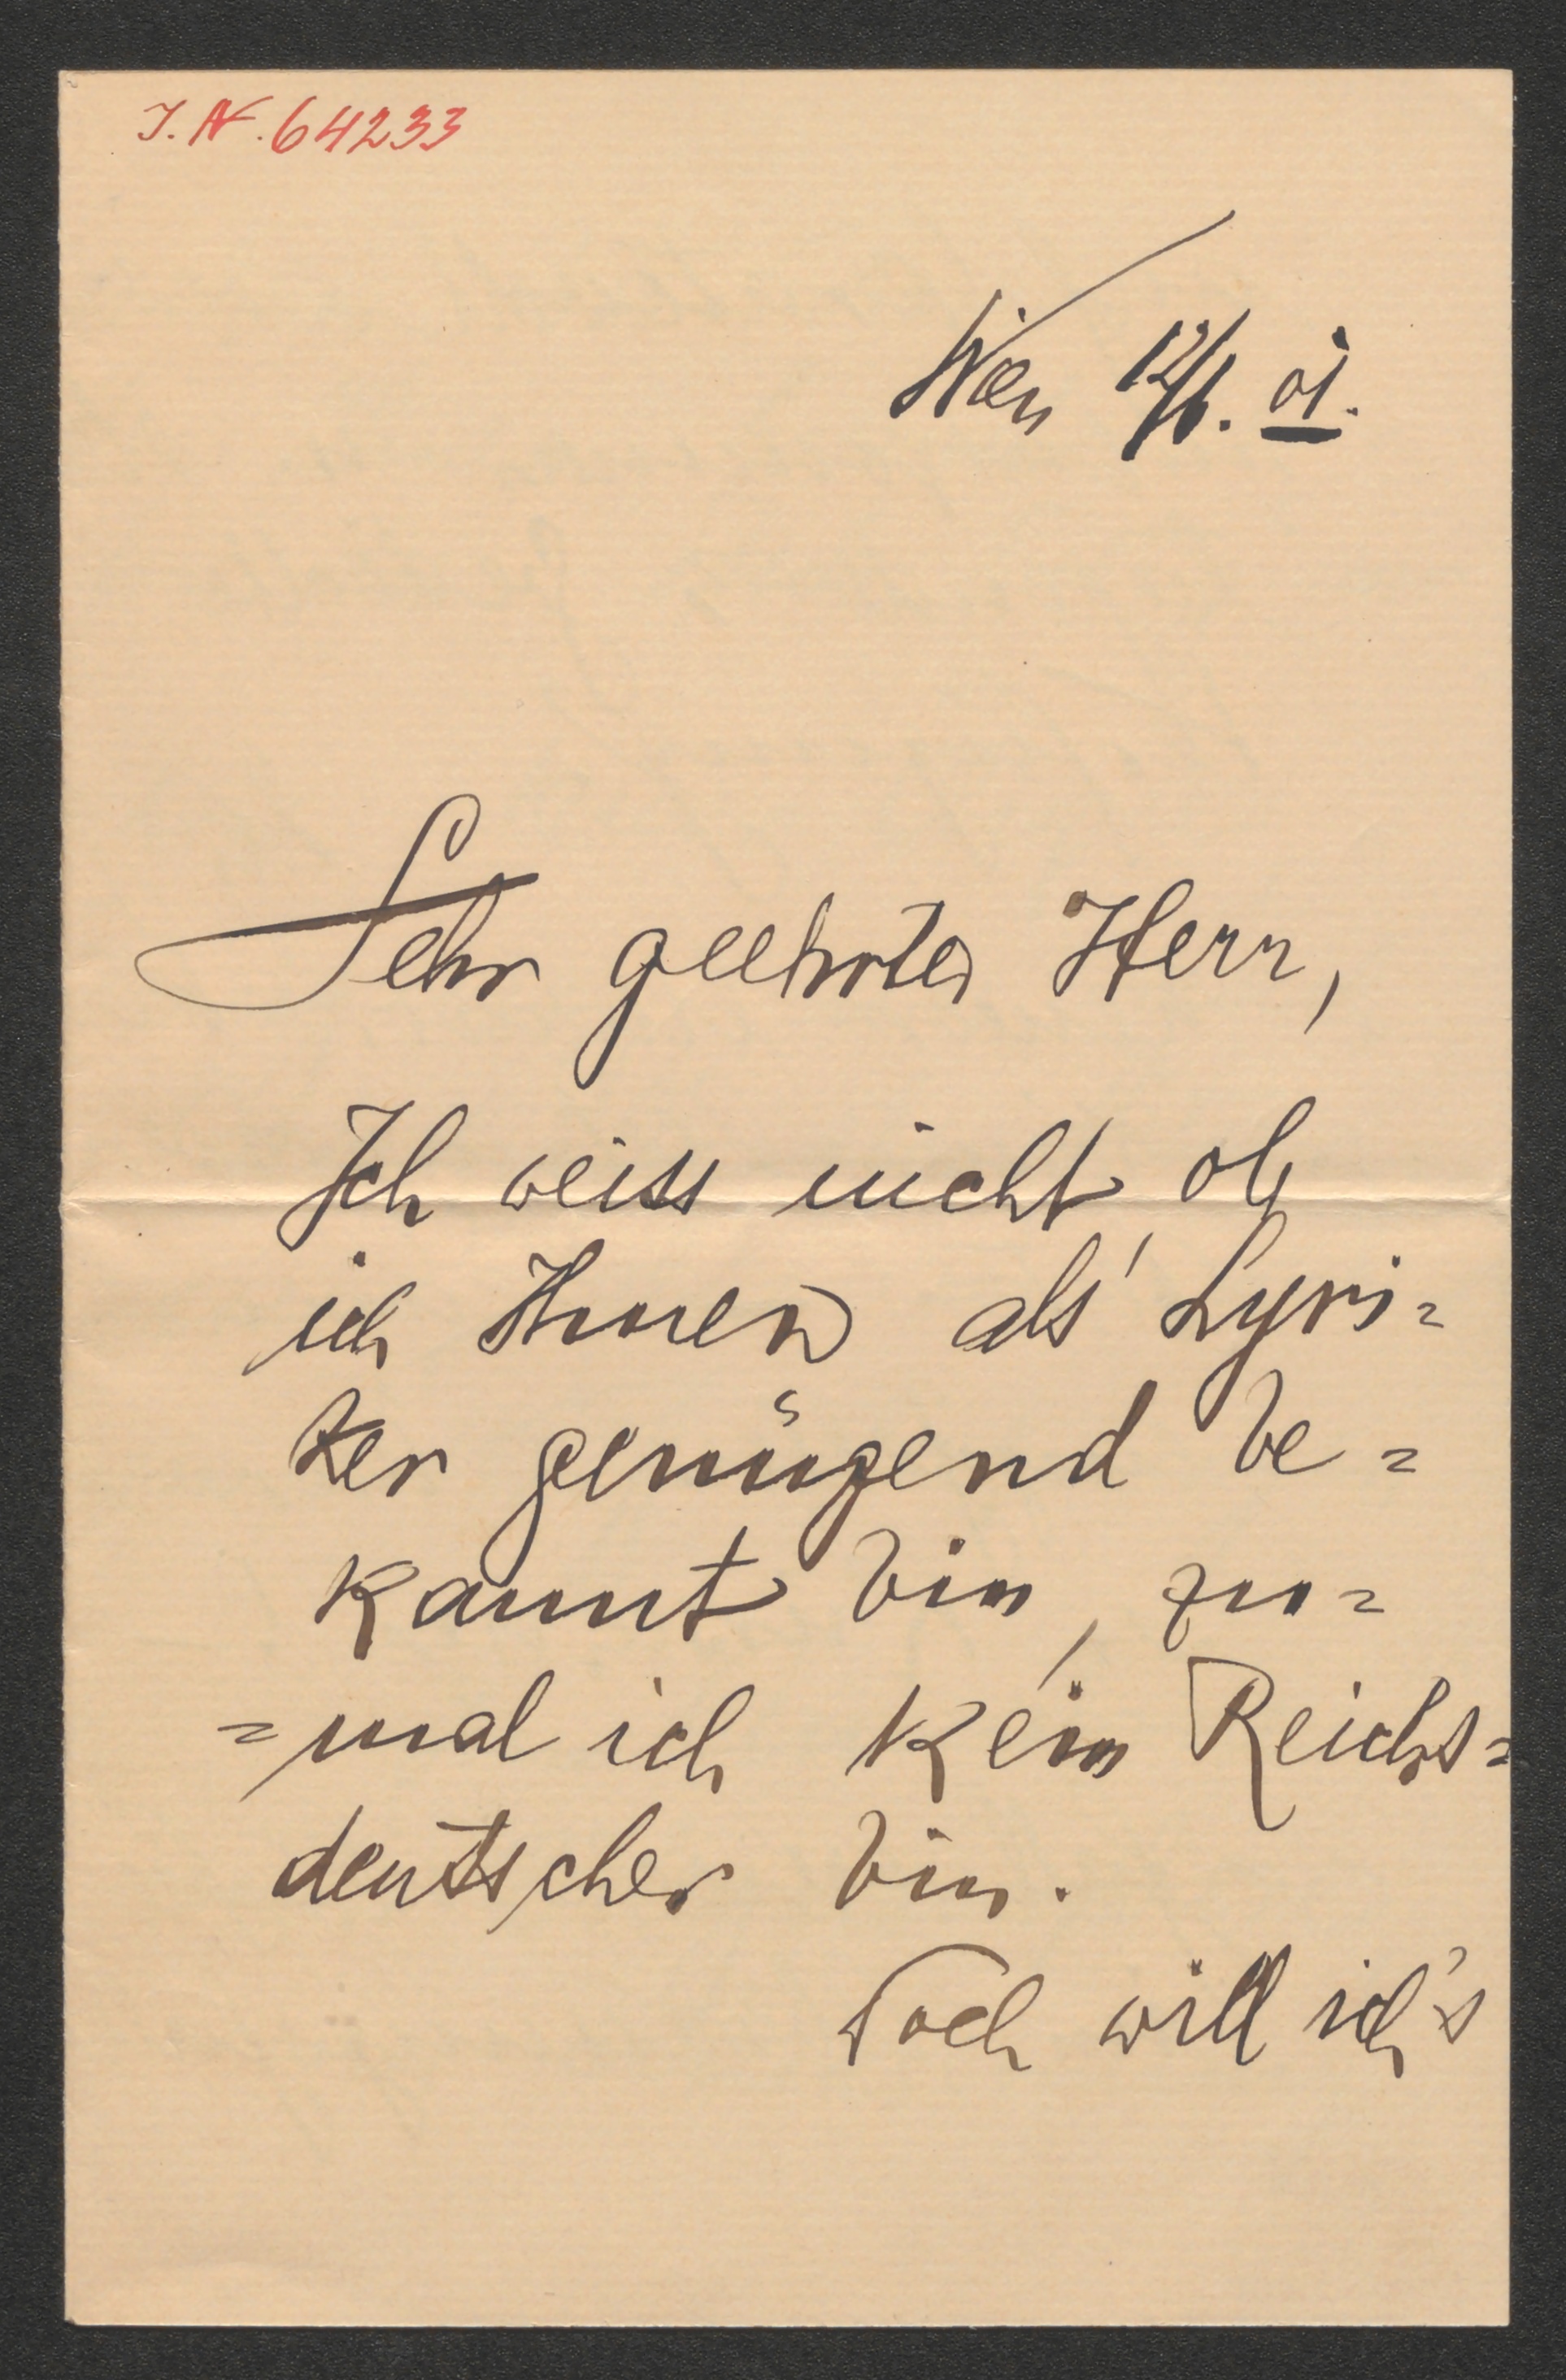 J.N. 64233
Wien 12/1. 01.
Sehr geehrter Herr,
Ich weiss nicht, ob
ich Ihnen als Lyri=
ker genügend be=
kannt bin, zu=
=mal ich kein Reichs=
deutscher bin.
Doch will ich's